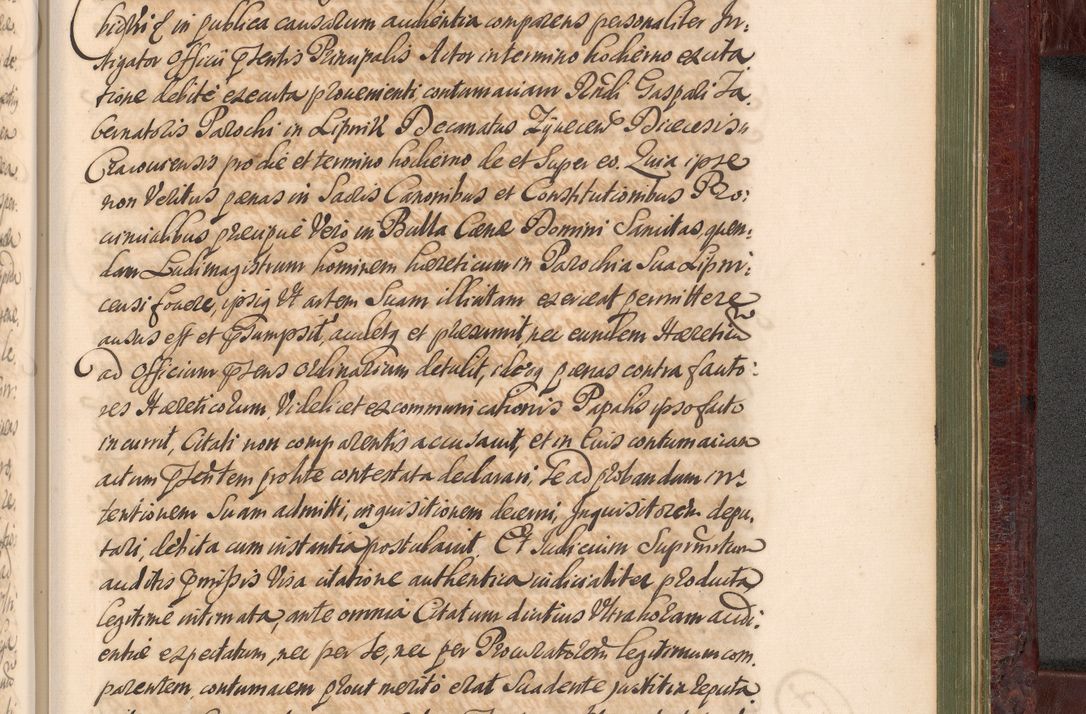 in publica causarum audientia comparens personaliter In:
stigator Officii psentis Principalis Actor in termino hodierno ex cita
tione debite executa, provenienti contumaciam Rndi Gaspari Ta.
bernatoris Parochi in Lipnik Decanatus Zyvecen Dioecesis
Cracoviensis pro die et termino hodierno de et super eo. Quia ipse
non veritus pænas in Sacris Canonibus et Constitutionibus Pro:
vincialibus præcipue vero in Bulla Cænæ Domini Sancitas, quen,
dam Ludimagistrum hominem hæreticum in Parochia Sua Lipni:
censi fovere, ipsiq Vt artem Suam illicitam exerceat permittere
ausus est et psumpsit, audetq et præsumit, nec eundem Hæreticu
ad Officium psens ordinarium detulit, ideoq pænas contra fauto:
res Hæreticorum, Videlicet excommunicationis Papalis ipso facto
incurrit, Citati non comparentis accusavit, et in Eius contumaciam
actum psentem pro lite contestata declarari, Se ad probandum in:
tentionem Suam admitti, inquisitionem decerni, Inquisitorem depu,
tari, debita cum instantia postulavit. Et Iudicium Supremum
auditis pmissis Visa citatione authentica iudicialiter producta
legitime intimata, ante omnia Citatum diutius Vltra horam audi:
entiæ expectatum, nec per Se, nec per Procuratorem legitimum com.
parentem, contumacem prout merito erat Suadente justitia reputa